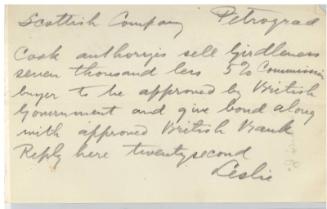 Scottish Company Petrograd
Cook authorizes sell Girdleness
seven thousand less 5% Commission
buyer to be approved by British
Government and give bond along
with approved British Bank
Reply here twentysecond
Leslie